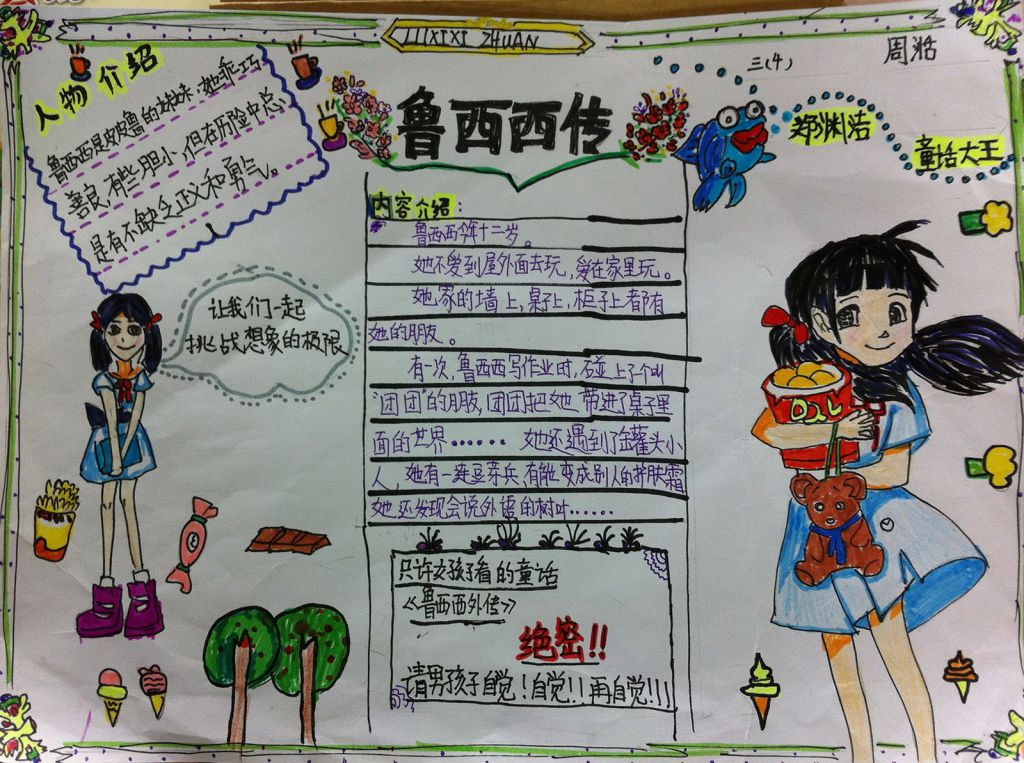 LUXIXI ZHUAN
三(4)
周湉
人物介绍
鲁西西是皮皮鲁的妹妹,她乖巧
善良,有些胆小,但在历险中总
是有不缺乏正义和勇气。
鲁西西传
郑渊洁
童话大王
让我们一起
挑战想象的极限
内容介绍:
鲁西西今年十二岁。
她不爱到屋外面去玩,爱在家里玩。
她家的墙上,桌子上,柜子上都有
她的朋友。
有一次,鲁西西写作业时,碰上了个叫
“团团”的朋友,团团把她带进了桌子里
面的世界…… 她还遇到了罐头小
人,她有一连豆芽兵,有能变成别人的护肤霜
她还发现会说外语的树叶……
只许女孩子看的童话
《鲁西西外传》
绝密!!
请男孩子自觉!自觉!!再自觉!!!